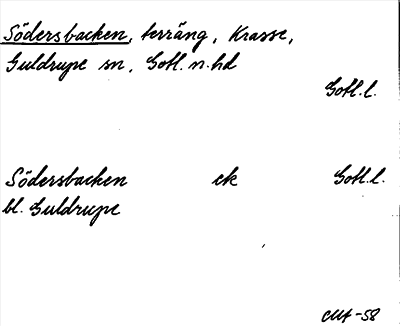 Södersbacken, terräng, Krasse,
Guldrupe sn, Gotl. n. hd
Gotl. l.
Södersbacken ek Gotl. l.
bl. Guldrupe
-58